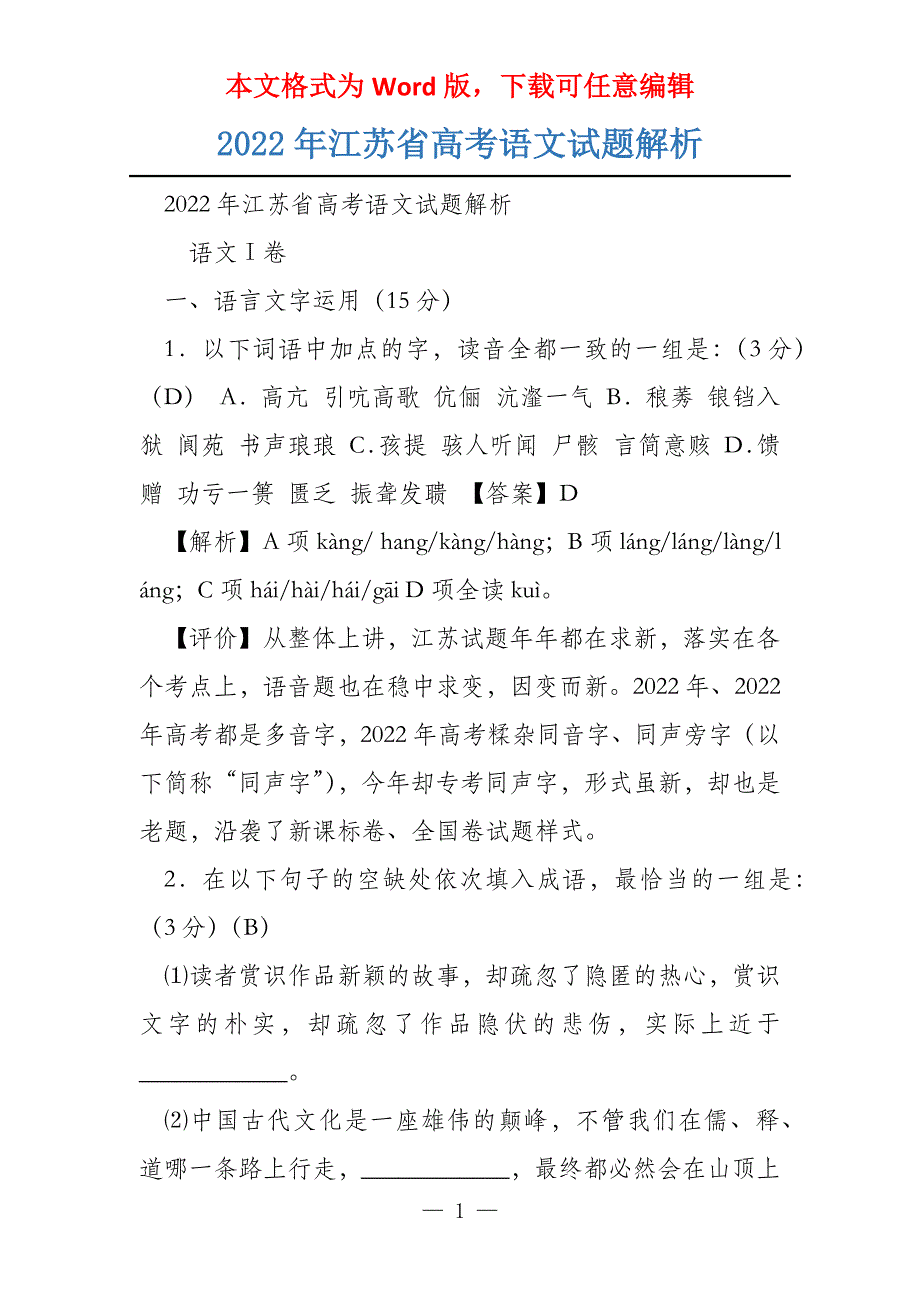 本文格式为 Word 版，下载可任意编辑
2022 年江苏省高考语文试题解析
2022 年江苏省高考语文试题解析
语文Ⅰ卷
一、语言文字运用（15 分）
1．以下词语中加点的字，读音全都一致的一组是：（3 分）
（D） A．高亢 引吭高歌 伉俪 沆瀣一气 B．稂莠 锒铛入
狱 阆苑 书声琅琅 C.孩提 骇人听闻 尸骸 言简意赅 D.馈
赠 功亏一篑 匮乏 振聋发聩 【答案】D
【解析】A 项 kàng/ hang/kàng/hàng；B 项 láng/láng/làng/l
áng；C 项 hái/hài/hái/gāi D 项全读 kuì。
【评价】从整体上讲，江苏试题年年都在求新，落实在各
个考点上，语音题也在稳中求变，因变而新。2022 年、2022
年高考都是多音字，2022 年高考糅杂同音字、同声旁字（以
下简称“同声字”），今年却专考同声字，形式虽新，却也是
老题，沿袭了新课标卷、全国卷试题样式。
2．在以下句子的空缺处依次填入成语，最恰当的一组是：
（3 分）（B）
⑴读者赏识作品新颖的故事，却疏忽了隐匿的热心，赏识
文字的朴实，却疏忽了作品隐伏的悲伤，实际上近于
____________。
⑵中国古代文化是一座雄伟的颠峰，不管我们在儒、释、
道哪一条路上行走，____________，最终都必然会在山顶上
— 1 —